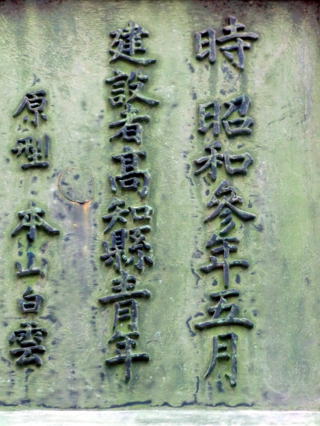 時昭和參年五月
建設者高知縣青年
原型 本山白雲